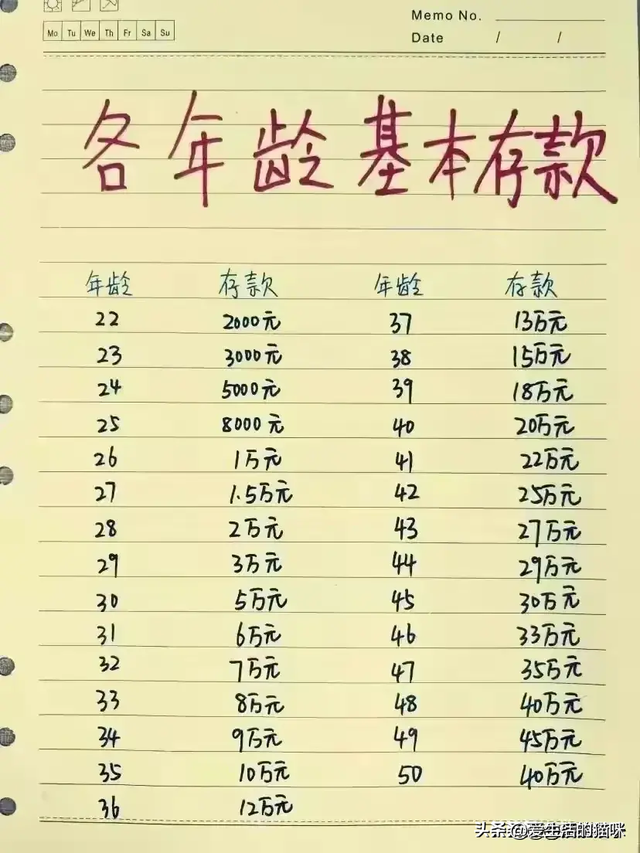 Memo No.
Mo Tu We Th Fr Sa Su
Date / /
各年龄基本存款
年龄 存款 年龄 存款
22 2000元 37 13万元
23 3000元 38 15万元
24 5000元 39 18万元
25 8000元 40 20万元
26 1万元 41 22万元
27 1.5万元 42 25万元
28 2万元 43 27万元
29 3万元 44 29万元
30 5万元 45 30万元
31 6万元 46 33万元
32 7万元 47 35万元
33 8万元 48 40万元
34 9万元 49 45万元
35 10万元 50 40万元
36 12万元
头条@爱生活的猫咪